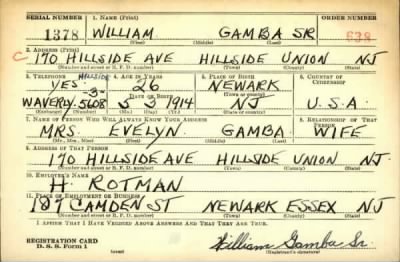 SERIAL NUMBER 1. NAME (Print) ORDER NUMBER
1378 WILLIAM GAMBA SR 638
(First) (Middle) (Last)
2. ADDRESS (Print)
C 170 HILLSIDE AVE HILLSIDE UNION NJ
(Number and street or R. F. D. number) (Town) (County) (State)
3. TELEPHONE 4. AGE IN YEARS 5. PLACE OF BIRTH 6. COUNTRY OF CITIZENSHIP
YES HILLSIDE 26 NEWARK
-3- DATE OF BIRTH
WAVERLY 5608 5 3 1914 NJ U.S.A
(Exchange) (Number) (Mo.) (Day) (Yr.) (State or country)
7. NAME OF PERSON WHO WILL ALWAYS KNOW YOUR ADDRESS 8. RELATIONSHIP OF THAT PERSON
MRS. EVELYN GAMBA WIFE
(Mr., Mrs., Miss) (First) (Middle) (Last)
9. ADDRESS OF THAT PERSON
170 HILLSIDE AVE HILLSIDE UNION NJ.
(Number and street or R. F. D. number) (Town) (County) (State)
10. EMPLOYER'S NAME
H. ROTMAN
11. PLACE OF EMPLOYMENT OR BUSINESS
187 CAMDEN ST NEWARK ESSEX NJ
(Number and street or R. F. D. number) (Town) (County) (State)
I AFFIRM THAT I HAVE VERIFIED ABOVE ANSWERS AND THAT THEY ARE TRUE.
REGISTRATION CARD
D. S. S. Form 1 (over) William Gamba Sr
(Registrant's signature)